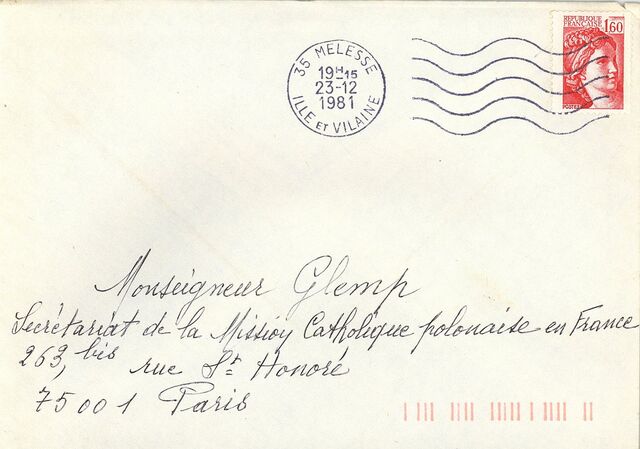 35 MELESSE
19H15
23-12
1981
ILLE ET VILAINE
REPUBLIQUE
FRANÇAISE
1,60
Monseigneur Glemp
Secrétariat de la Mission Catholique polonaise en France
263, bis rue St Honoré
75001 Paris